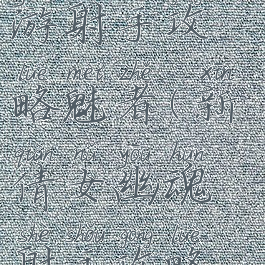 游射手攻
lüe mei zhe xin
略魅者(新
qian nü you hun
倩女幽魂
she shou gong lüe